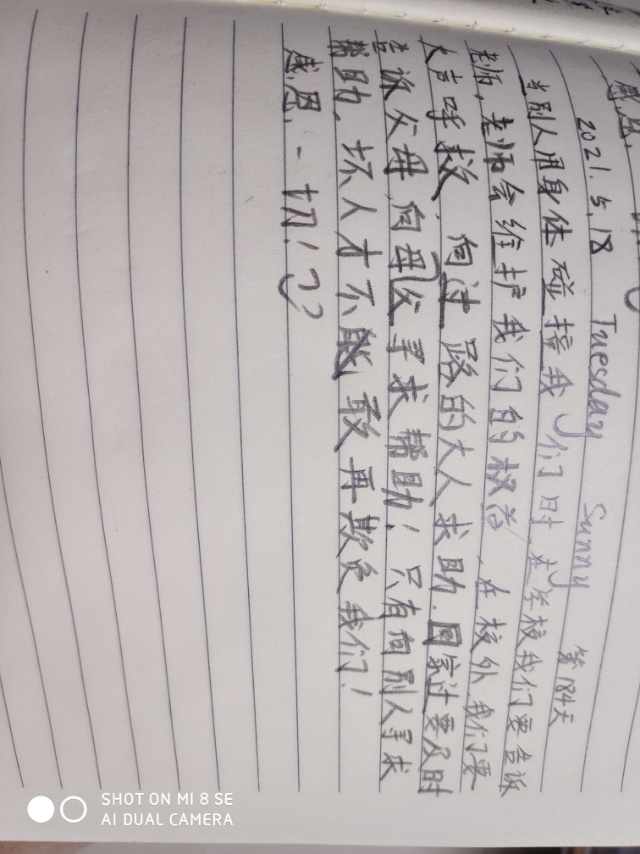 感恩,
2021.5.18 Tuesday Sunny 第184天
当别人用身体碰撞我们时在学校我们要告诉
老师,老师会维护我们的权益,在校外我们要
大声呼救,向过路的大人求助.回家过要及时
告诉父母,向母父寻求帮助!只有向别人寻求
帮助,坏人才不敢再欺负我们!
感恩.一切!
SHOT ON MI 8 SE
AI DUAL CAMERA